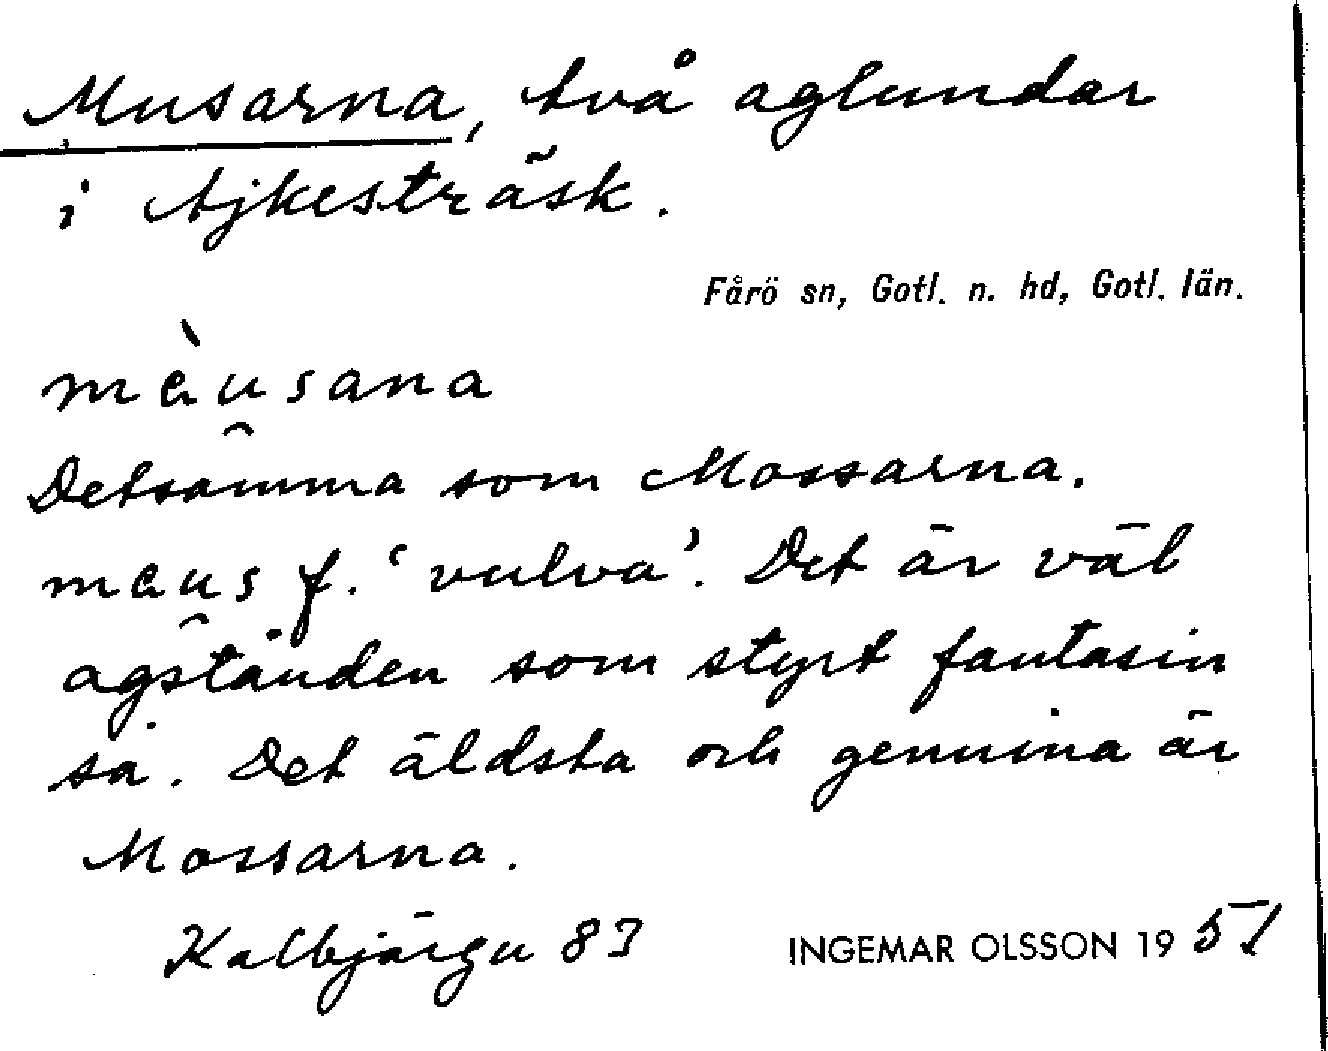 Musarna, två aglundar
i Ajkesträsk.
Fårö sn, Gotl. n. hd, Gotl. län.
mausana
Detsamma som Mossarna.
maus f. 'vulva'. Det är väl
agstånden som styrt fantasin
så. Det äldsta och genuina är
Mossarna.
Kalbjärgu 83
INGEMAR OLSSON 1951